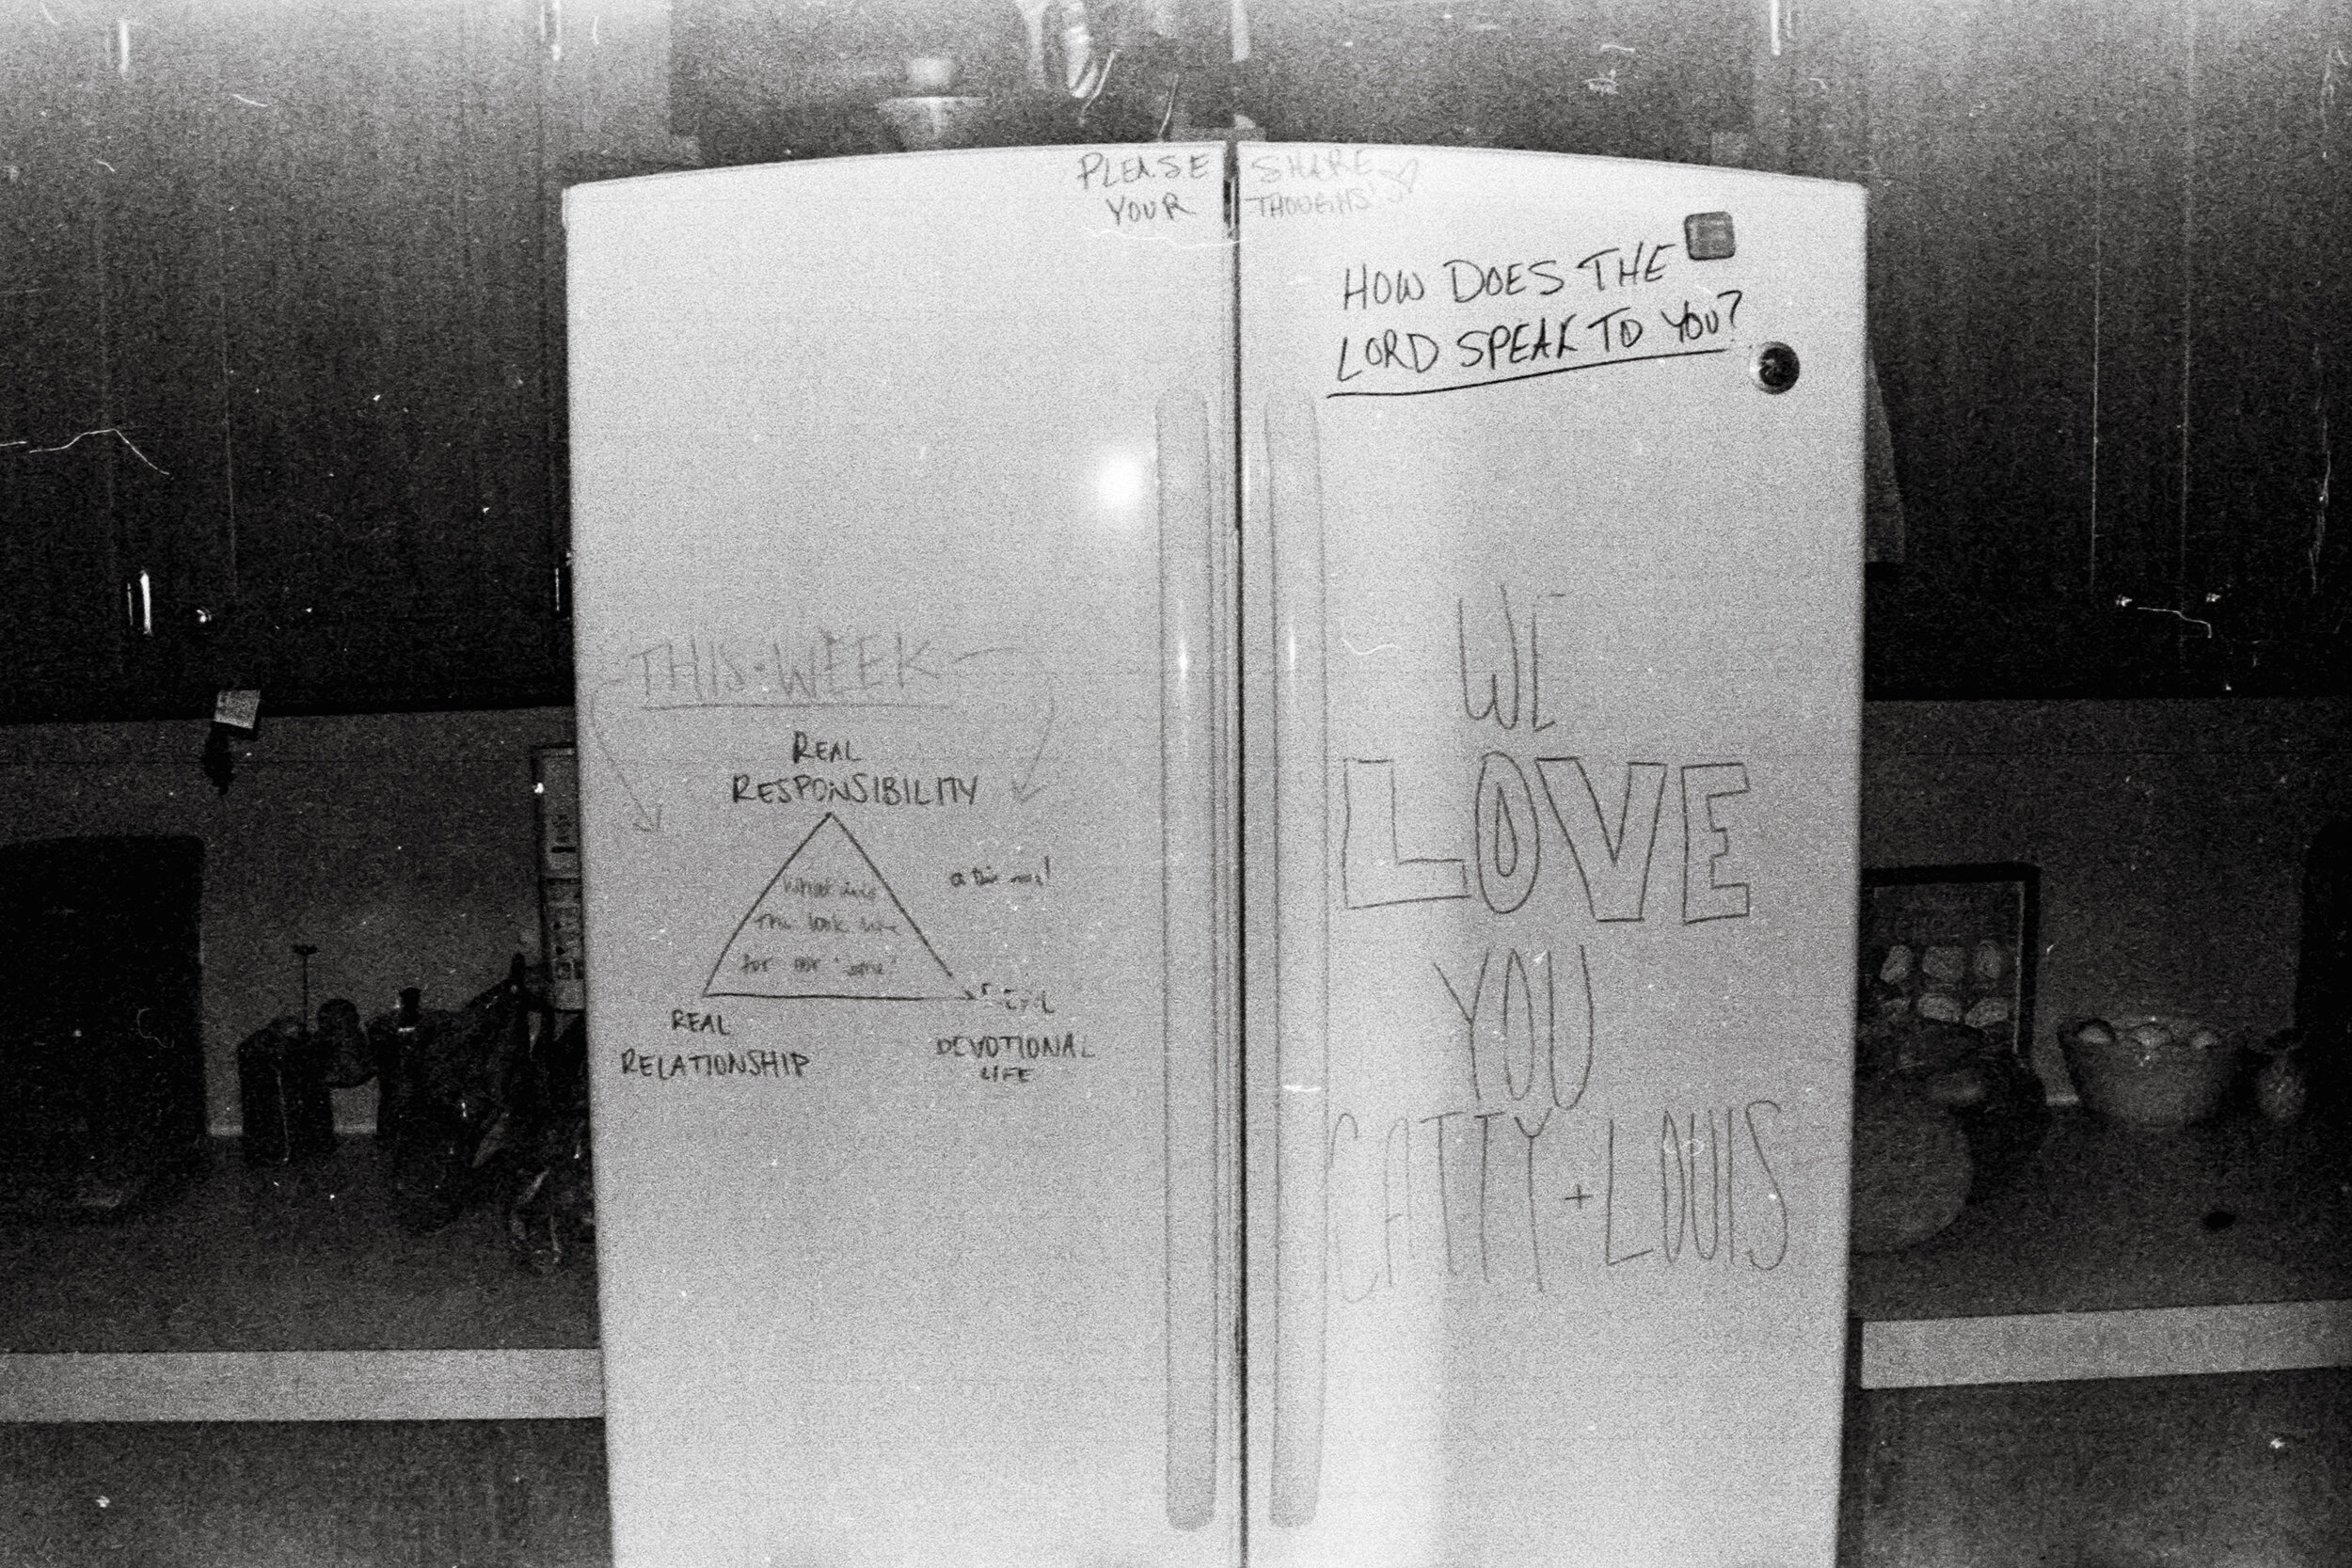 PLEASE SHARE
YOUR THOUGHTS
HOW DOES THE
LORD SPEAK TO YOU?
THIS WEEK
REAL
RESPONSIBILITY
What does
this look like
for our
REAL
RELATIONSHIP
REAL
DEVOTIONAL
LIFE
WE
LOVE
YOU
CATTY + LOUIS